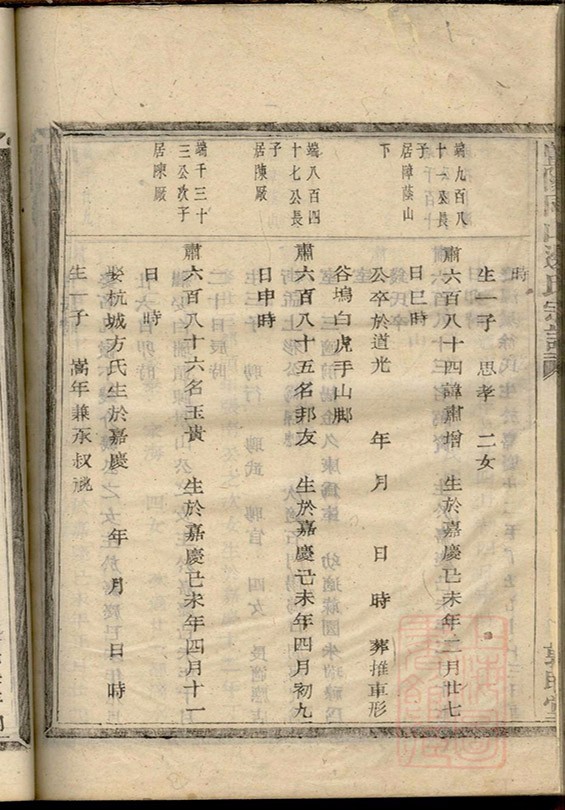 時
生一子　思孝　二女
端九百八
十一公長
子
居障蔭山
下
肅六百八十四諱肅增　生於嘉慶己未年二月廿七
日巳時
公卒於道光　年　月　日　時　葬推車形
谷塢白虎手山脚
端八百四
十七公長
子
居陳厰
肅六百八十五名邦友　生於嘉慶己未年四月初九
日申時
端千三十
三公次子
居陳厰
肅六百八十六名玉貴　生於嘉慶己未年四月十一
日　時
娶杭城方氏生於嘉慶　年　月　日　時
生一子　嵩年兼承叔祧